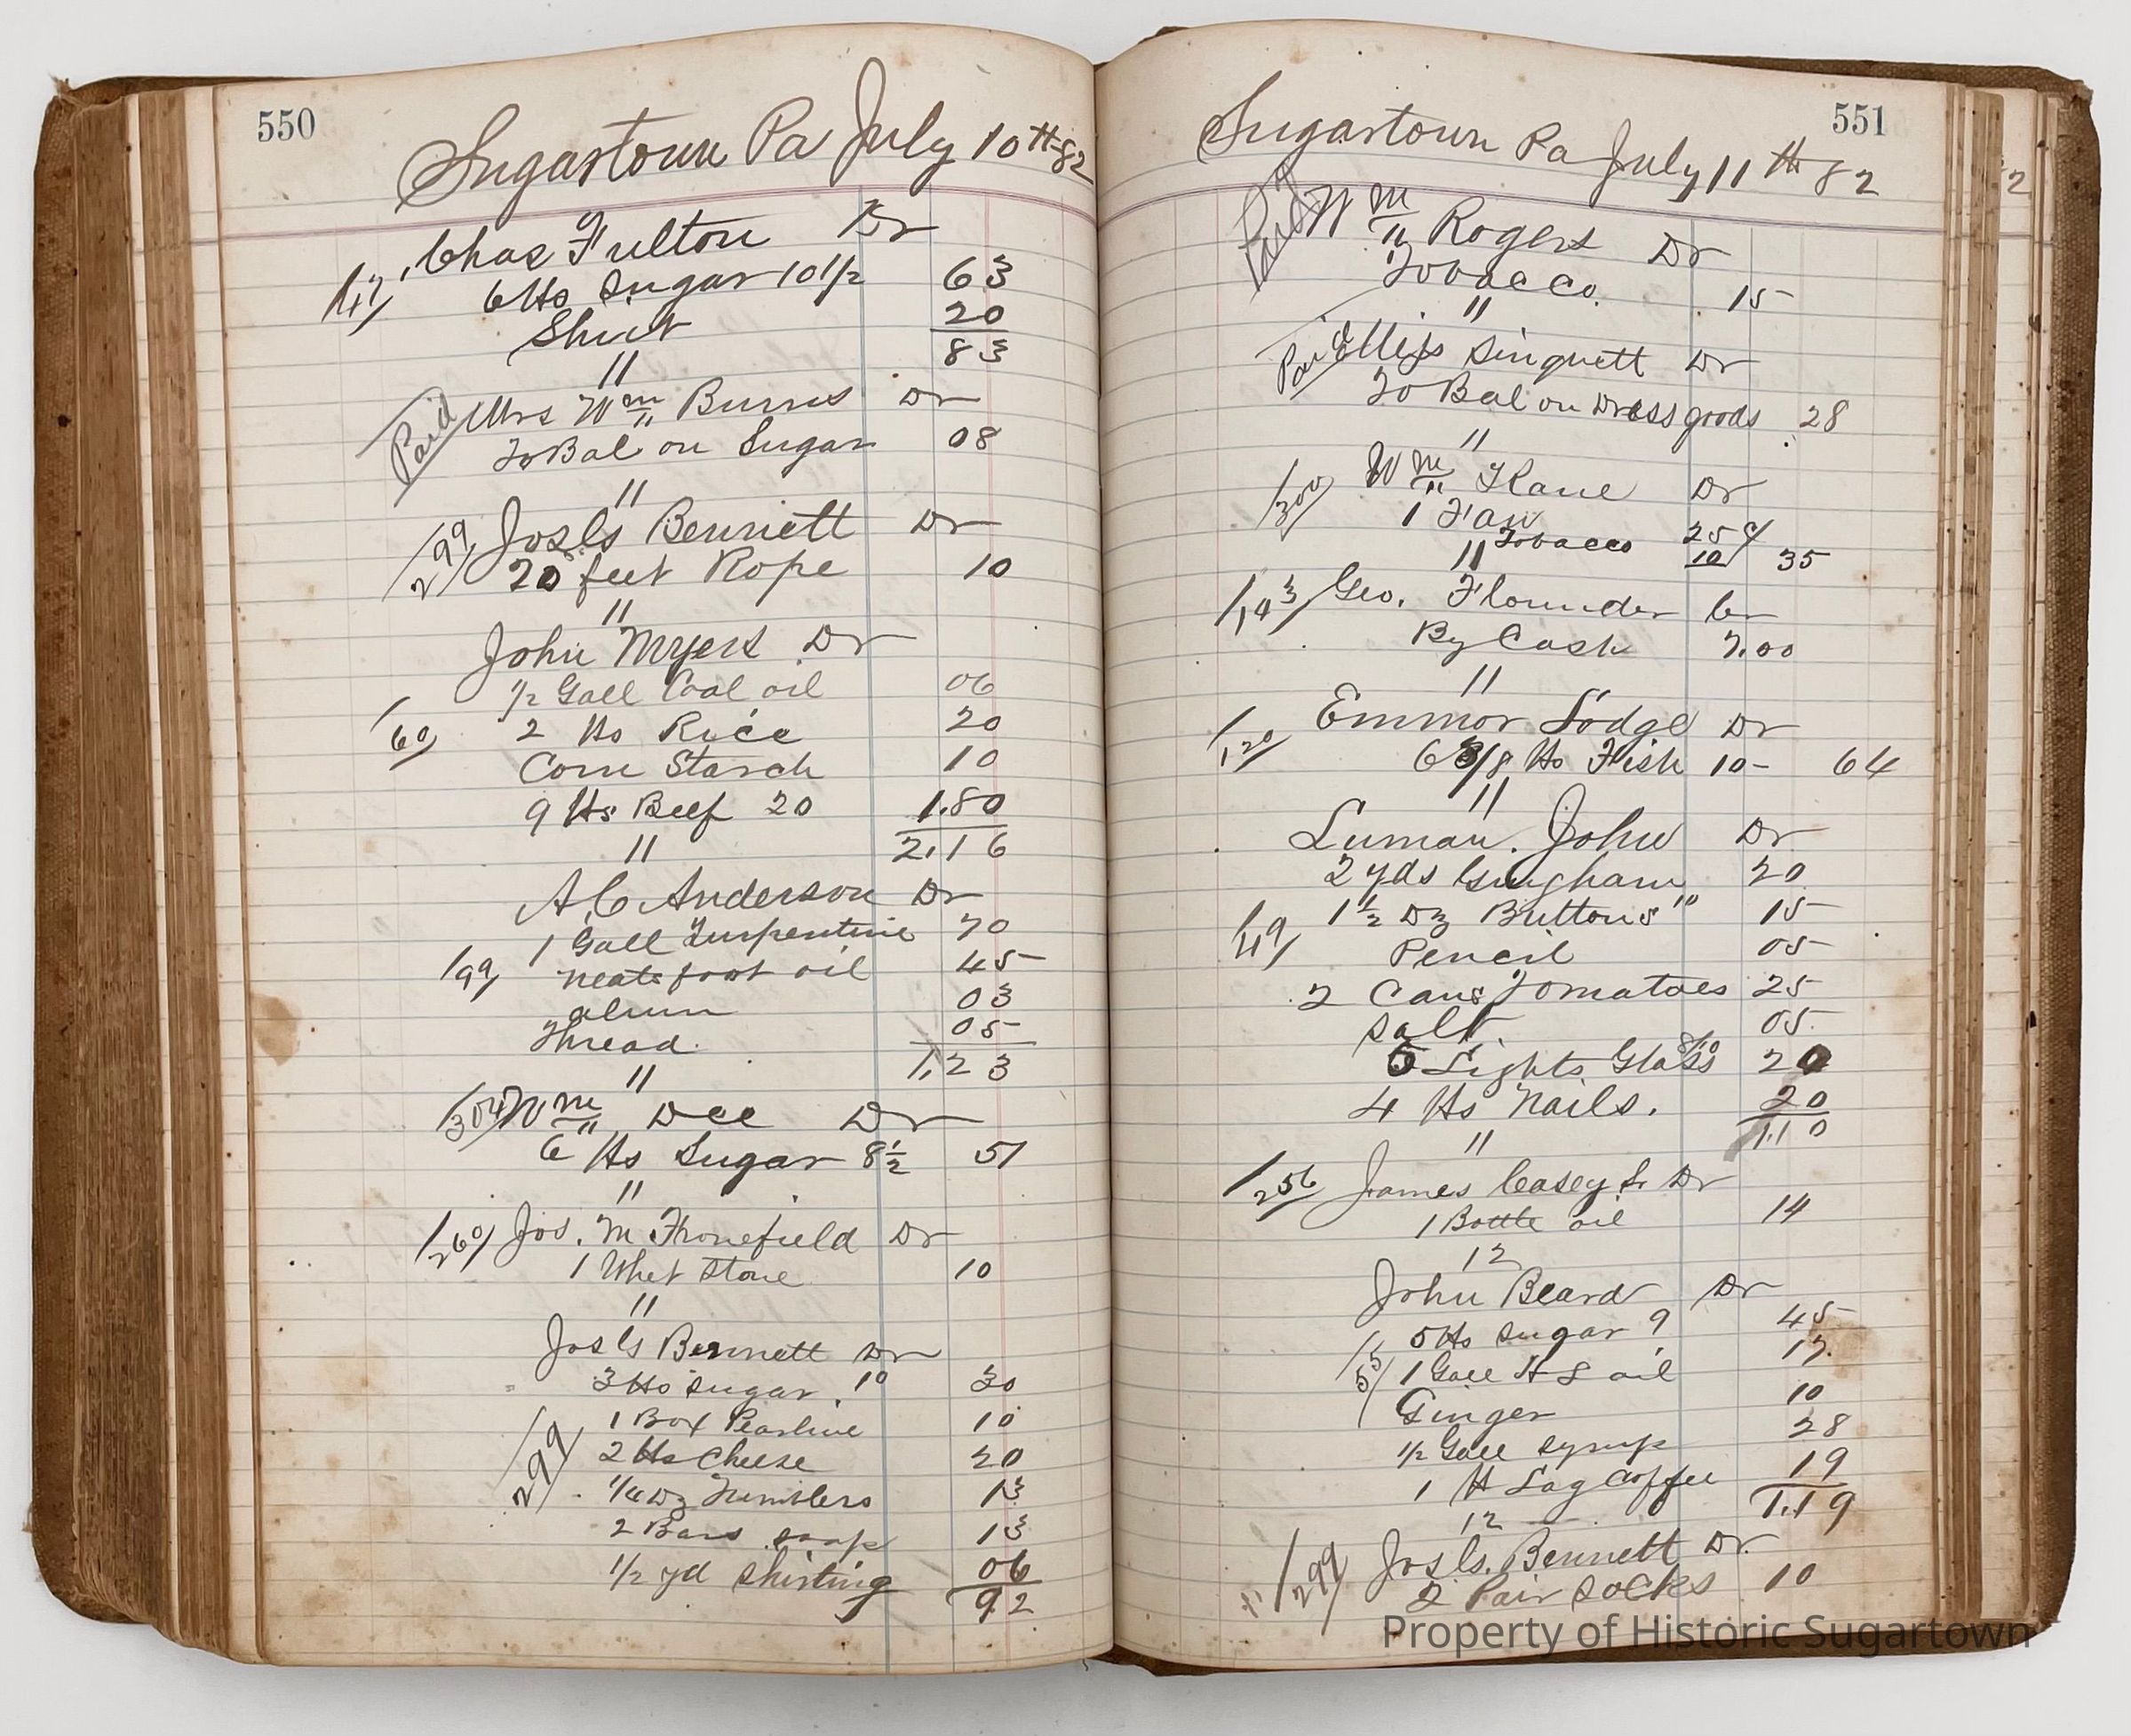 550
Sugartown Pa July 10th 82
Chas Fulton Dr
6 lbs Sugar 10 1/2 63
20
83
"
Paid Mrs Wm Burns Dr
To Bal on Sugar 08
"
299 Jos Bennett Dr
20 feet Rope 10
"
John Myers Dr
1/2 Gall Coal oil 06
2 lbs Rice 20
Corn Starch 10
9 lbs Beef 20 1.80
" 2.16
A C Anderson Dr
1 Gall Turpentine 70
199 neats foot oil 45
alum 03
Thread 05
" 1.23
304 Wm Dee Dr
6 lbs Sugar 8 1/2 51
"
Jos. M Fronefield Dr
1 Whet Stone 10
"
Jos Bennett Dr
3 lbs Sugar 10 30
1 Box Pearline 10
2 lbs Cheese 20
299 1/4 Dz Tumblers 13
2 Bars soap 13
1/2 yd Shirting 06
92
551
Sugartown Pa July 11th 82
Paid Wm Rogers Dr
Tobacco 15
"
Paid Singuett Dr
To Bal on Dress goods 28
"
300 Wm Kane Dr
1 Fan 25
" Tobacco 10 35
143 Geo. Flounder Cr
By Cash 7.00
"
120 Emmor Lodge Dr
6 3/8 lbs Fish 10 - 64
"
Luman. John Dr
2 yds Gingham 10 20
1 1/2 Dz Buttons 15
Pencil 05
2 Cans Tomatoes 25
Salt 05
5 Lights Glass 8/10 20
4 lbs Nails. 20
" 1.10
256 James Casey Dr
1 Bottle oil 14
12
John Beard Dr
5 lbs Sugar 9 45
55 1 Gall H L oil 17
Ginger 10
1/2 Gall Syrup 28
1 lb Lag Coffee 19
12 1.19
299 Jos Bennett Dr
2 Pair Socks 10
Property of Historic Sugartown